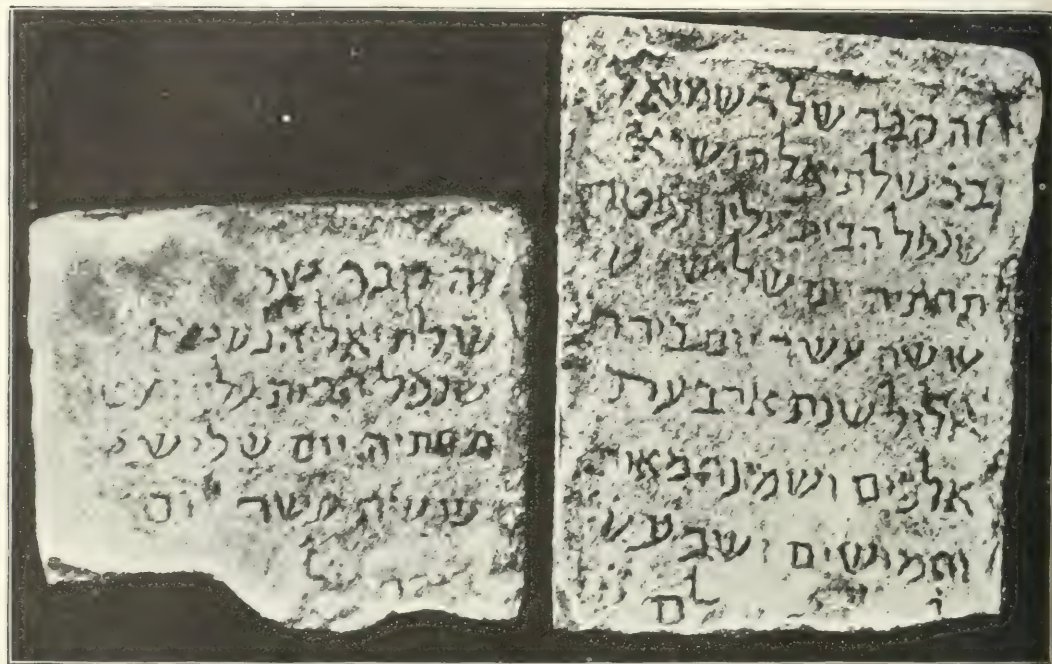 זה קבר של ר שמואל
בר שלתיאל הנשיא
שנפל הבית עליו ומת
תחתיה יום שלישי ש
ששה עשר יום בירח
אלול שנת ארבעת
אלפים ושמונה מאות
וחמושים ושבע ש
לם
זה קבר
שלתיאל הנשיא
שנפל הבית עליו ומת
תחתיה יום שלישי
ששה עשר יום